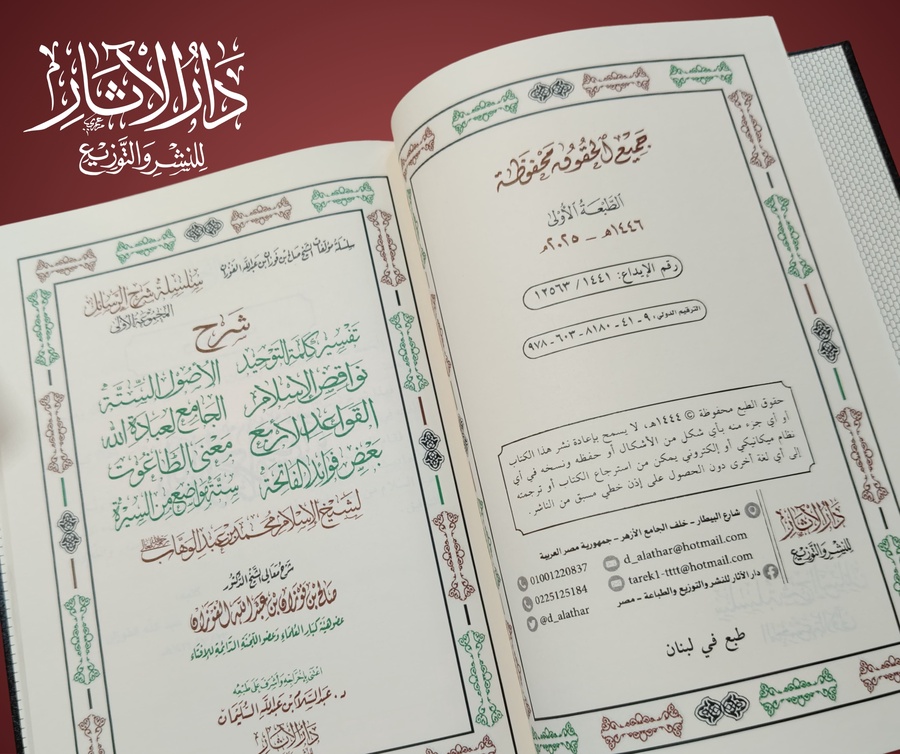 دار الآثار
للنشر والتوزيع
جميع الحقوق محفوظة
الطبعة الأولى
١٤٤٦هـ - ٢٠٢٥م
رقم الإيداع: ١٤٤١ / ١٢٥٦٣
الترقيم الدولي: ٩-٤١-٨١٨٠-٦٠٣-٩٧٨
حقوق الطبع محفوظة © ١٤٤٤هـ، لا يسمح بإعادة نشر هذا الكتاب
أو أي جزء منه بأي شكل من الأشكال أو حفظه ونسخه في أي
نظام ميكانيكي أو إلكتروني يمكن من استرجاع الكتاب أو ترجمته
إلى أي لغة أخرى دون الحصول على إذن خطي مسبق من الناشر.
دار الآثار
للنشر والتوزيع
شارع البيطار - خلف الجامع الأزهر - جمهورية مصر العربية
01001220837 d_alathar@hotmail.com
0225125184 tarek1-tttt@hotmail.com
@d_alathar دار الآثار للنشر والتوزيع والطباعة - مصر
طبع في لبنان
سلسلة مؤلفات الشيخ صالح بن فوزان بن عبد الله الفوزان
سلسلة شرح الرسائل
المجموعة الأولى
شرح
تفسير كلمة التوحيد الأصول الستة
نواقض الإسلام الجامع لعبادة الله
القواعد الأربع معنى الطاغوت
بعض فوائد الفاتحة ستة مواضع من السيرة
لشيخ الإسلام محمد بن عبد الوهاب
شرح معالي الشيخ الدكتور
صالح بن فوزان بن عبد الله الفوزان
عضو هيئة كبار العلماء وعضو اللجنة الدائمة للإفتاء
اعتنى بإخراجه وأشرف على طبعه
د. عبد السلام بن عبد الله السليمان
دار الآثار